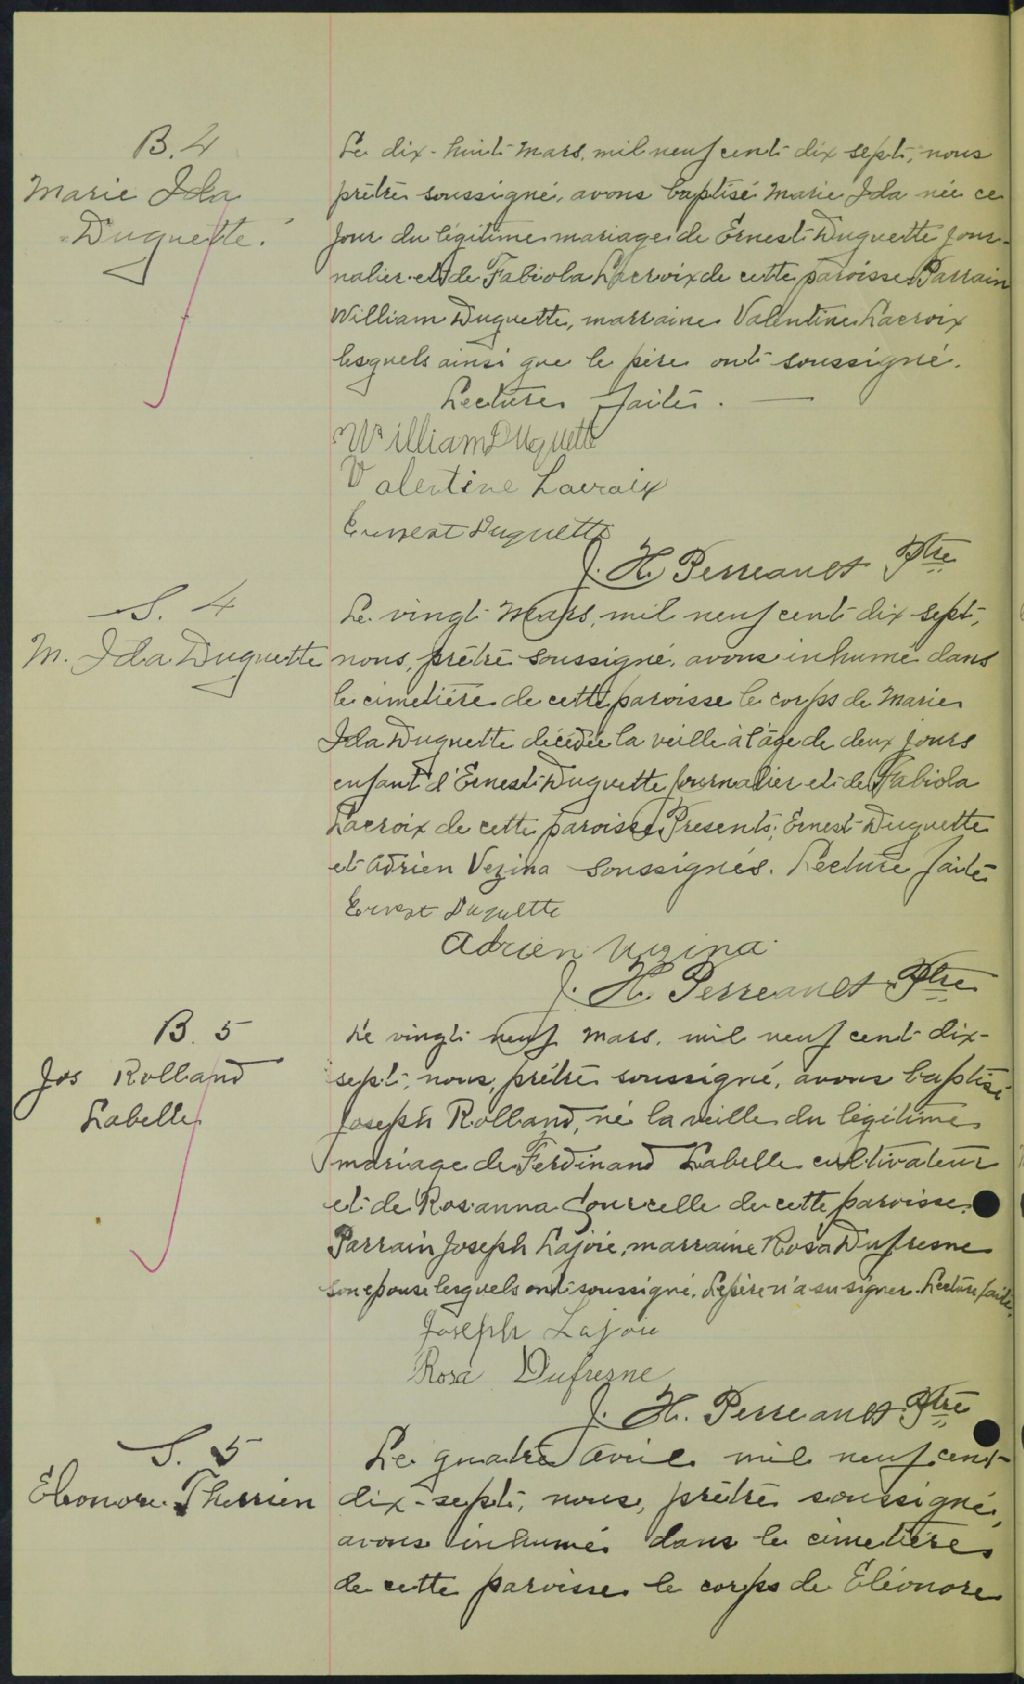 B. 4
Marie Ida
Duquette.
Le dix-huit mars, mil neuf cent dix sept, nous
prêtre soussigné, avons baptisé Marie Ida née ce
jour du légitime mariage de Ernest Duquette jour-
nalier et de Fabiola Lacroix de cette paroisse. Parrain
William Duquette, marraine Valentine Lacroix
lesquels ainsi que le père ont soussigné.
Lecture faite. —
William Duquette
Valentine Lacroix
Ernest Duquette
J. H. Perreault Ptre
S. 4
M. Ida Duquette
Le vingt mars, mil neuf cent dix-sept,
nous, prêtre soussigné, avons inhumé dans
le cimetière de cette paroisse le corps de Marie
Ida Duquette décédée la veille à l'âge de deux jours
enfant d'Ernest Duquette journalier et de Fabiola
Lacroix de cette paroisse. Présents; Ernest Duquette
et Adrien Vezina soussignés. Lecture faite
Ernest Duquette
Adrien Vezina
J. H. Perreault Ptre
B. 5
Jos Rolland
Labelle
Le vingt neuf mars, mil neuf cent dix-
sept, nous, prêtre soussigné, avons baptisé
Joseph Rolland, né la veille du légitime
mariage de Ferdinand Labelle cultivateur
et de Rosanna Courcelle de cette paroisse.
Parrain Joseph Lajoie, marraine Rosa Dufresne
son épouse lesquels ont soussigné. Le père n'a su signer. Lecture faite.
Joseph Lajoie
Rosa Dufresne
J. H. Perreault Ptre
S. 5
Éléonore Therrien
Le quatre avril mil neuf cent
dix-sept, nous, prêtre soussigné,
avons inhumé dans le cimetière
de cette paroisse le corps de Éléonore